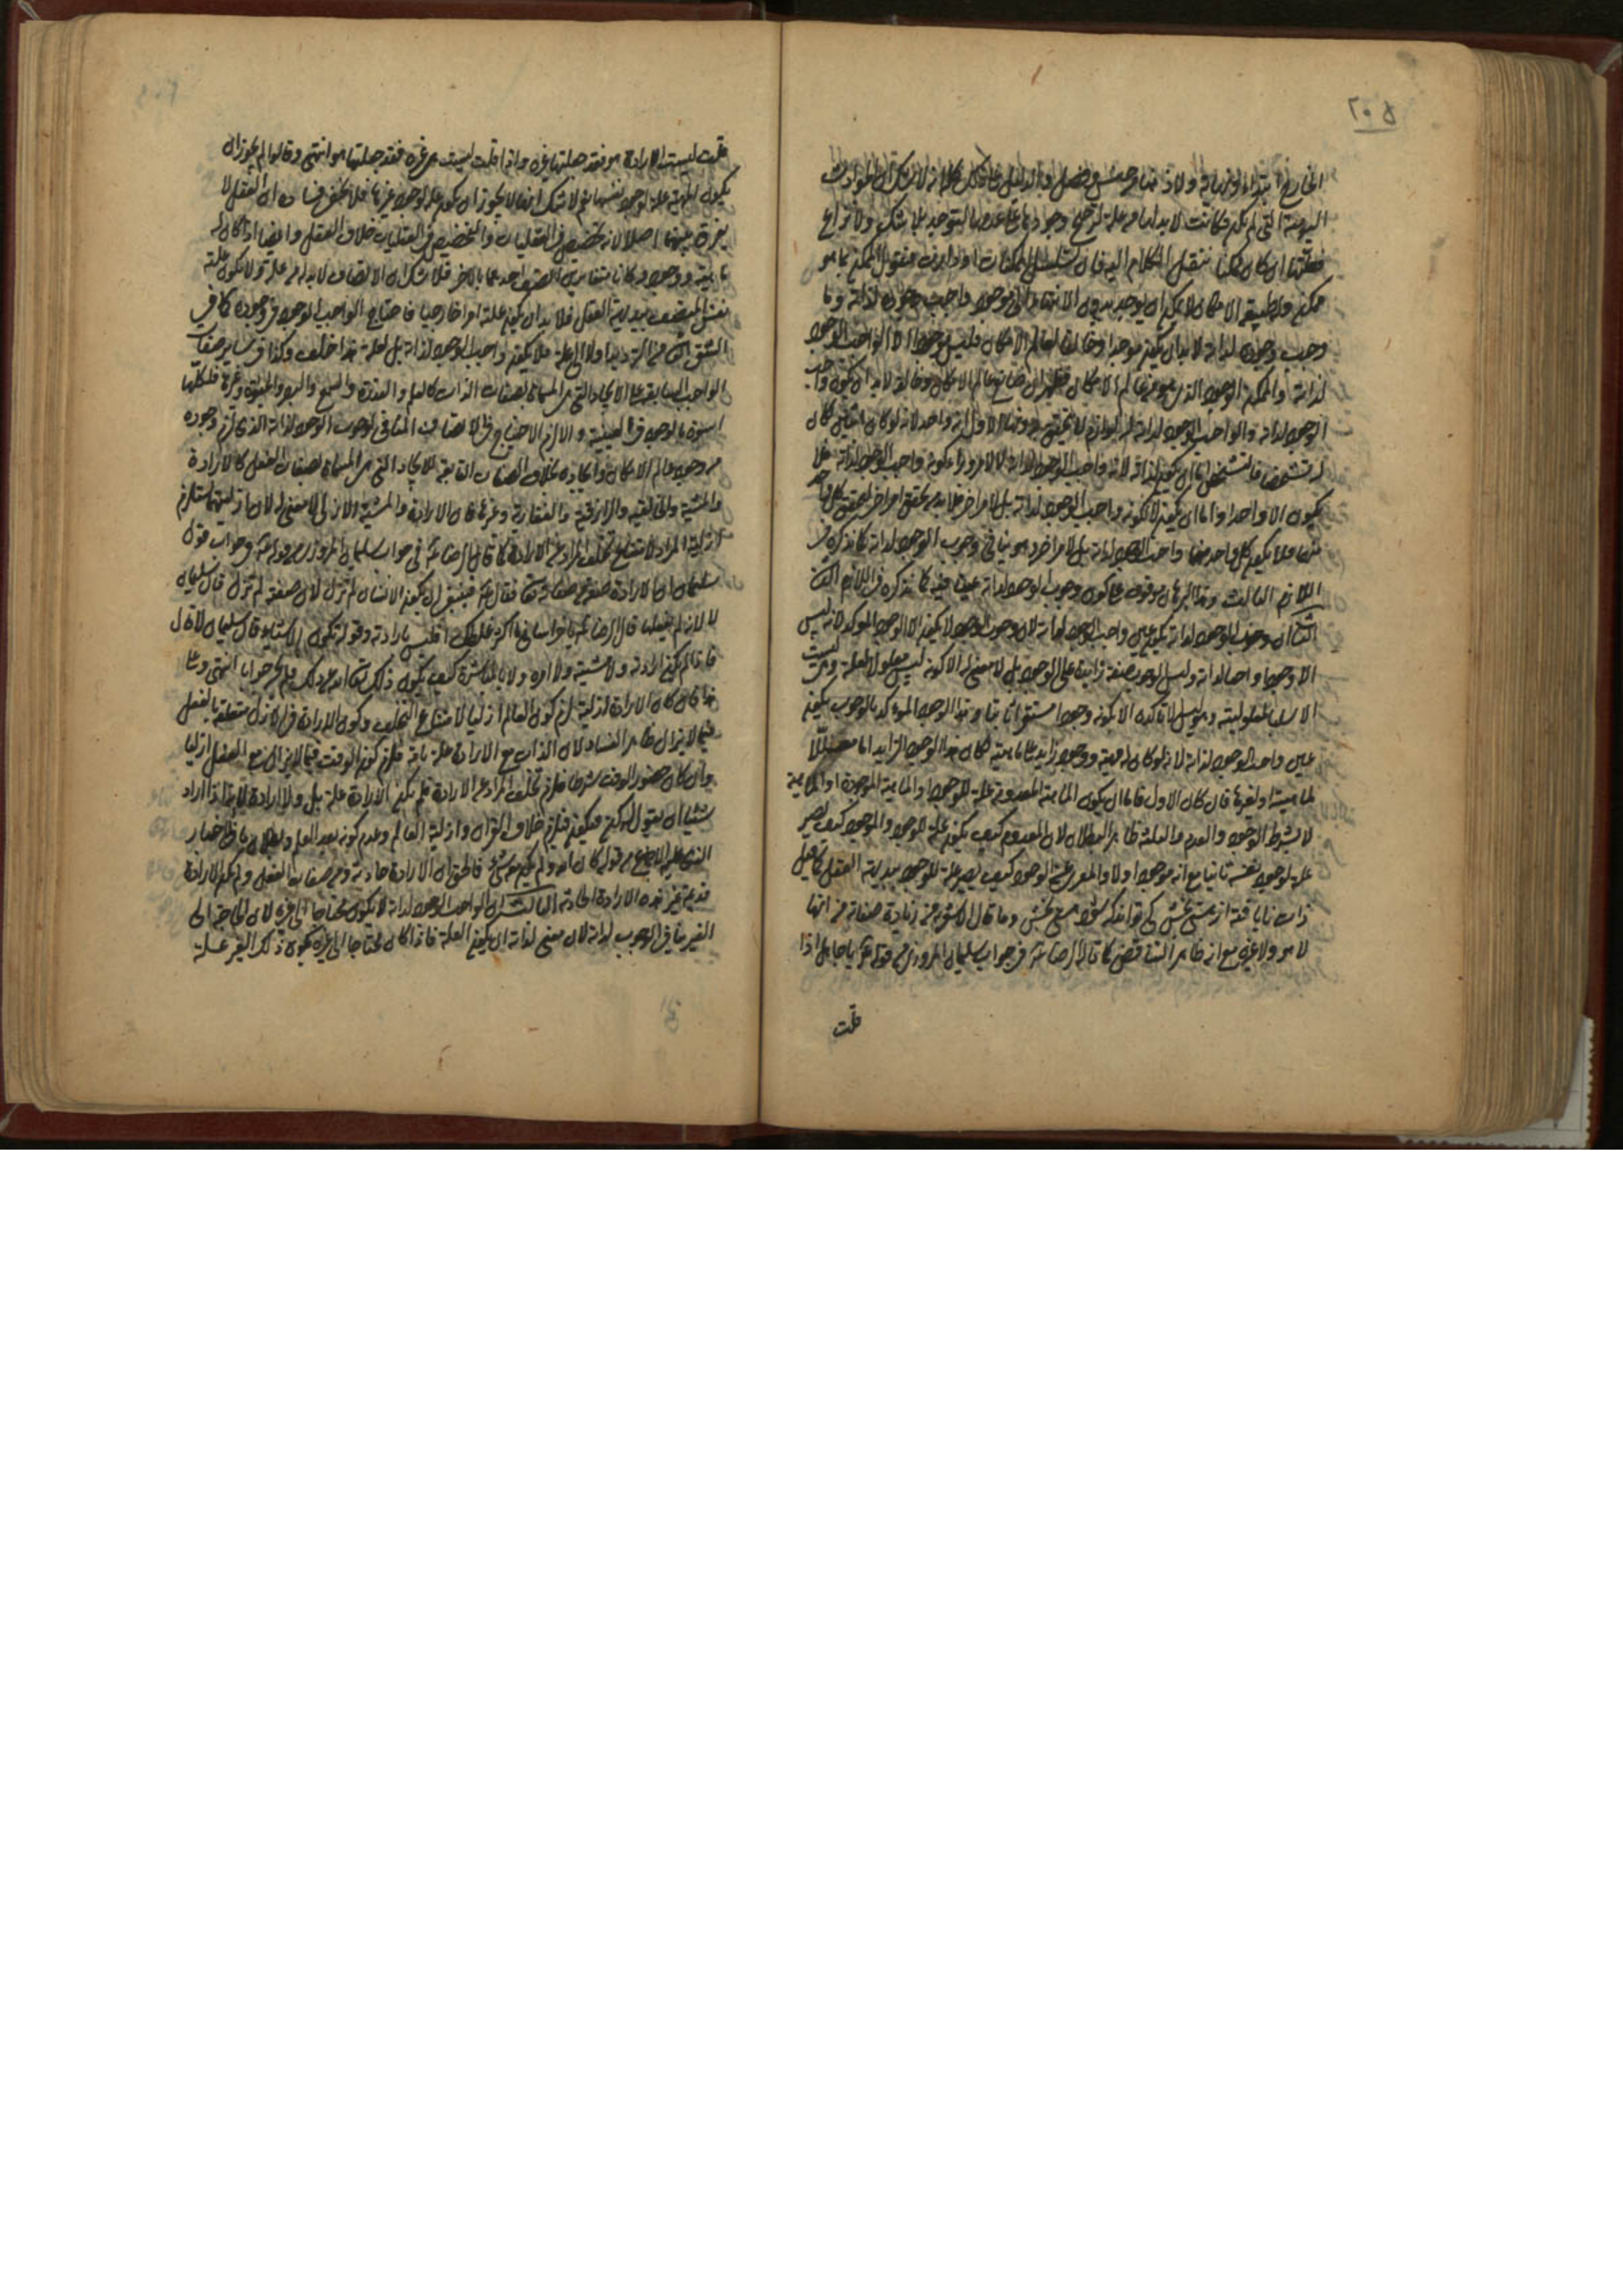 ٢٠٥
اليومية التي لم تكن فكانت لا بد لها من علة ترجح وجودها على عدمها بالتوحيد بلا شك ولا نزاع
فعلتها ان كان ممكنا ننقل الكلام اليه فان تسلسل الممكنات او دارت فنقول الممكن بما هو
ممكن وطبيعة الامكان لا يمكن ان يوجد بدون الانتهاء الى موجود واجب وجوده لذاته وما
وجب وجوده لذاته لا بد ان يكون موجدا وخالقا لعالم الامكان فليس موجود الا الواجب الوجود
لذاته والممكن الوجود الذي هو من عالم الامكان فظهر ان صانع عالم الامكان وخالقه لا بد ان يكون واجب
الوجود لذاته والواجب الوجود لذاته له لوازم لا يتحقق بدونها الاول انه واحد لانه لو كان اثنين لكان
له تشخص فالتشخص اما ان يكون لذاته لانه واجب الوجود لذاته لا لامر وراء كونه واجب الوجود لذاته فلا
يكون الا واحدا واما ان يكون لا لكونه واجب الوجود لذاته بل لامر اخر فلا بد من تحقق امر اخر لتحقق كل واحد
منهما فلا يكون كل واحد منهما واجب الوجود لذاته بل لامر اخر وهو ينافي وجوب الوجود لذاته كما نذكره في
اللازم الثالث وهذا البرهان موقوف على كون وجوب الوجود لذاته عينا فيه كما نذكره في اللازم الثاني
الثاني ان وجوب الوجود لذاته يكون عين واجب الوجود لذاته لان وجوب الوجود لا يكون الا الوجود الموكد لانه ليس
الا وجودا واحدا لذاته وليس الوجوب صفة زائدة على الوجود بل لا معنى له الا كونه ليس معلولا لعلة وليست
الا سلب المعلولية وهو ليس الا تاكده الا بكونه وجودا مستقرا ثابتا وهذا الوجود الموكد بالوجوب يكون
عين واجب الوجود لذاته لانه لو كان له مهية ووجود زايد على ماهيته لكان هذا الوجود الزايد اما معللا
لماهيته او لغيرها فان كان الاول فاما ان يكون الماهية المعدومة علة للوجود او الماهية الموجودة او الماهية
لا بشرط الوجود والعدم والثلثة ظاهر البطلان لان المعدوم كيف يكون علة للوجود والموجود كيف يصير
علة لوجود نفسه ثانيا مع انه موجود اولا والمعرى عن الوجود كيف يصير علة للوجود ببديهة العقل كما قيل
ذات نايافته از هستى بخش كى تواند كه شود هستى بخش وما قال الاشعرية من زيادة صفاته من انها
لا هو ولا غيره مع انه ظاهر التناقض كما قال الرضا ع في جواب سليمان المروزي من قوله ع يا جاهل اذا
قلت
قلت ليست الارادة هو فقد جعلتها غيره واذا قلت ليست هي غيره فقد جعلتها هو انتهى وقالوا لم يجوز ان
يكون المهية علة لوجود نفسها نعم لا شك انها لا يجوز ان يكون علة لوجود غيرها فلا يخفى فساده لان العقل لا
يفرق بينهما اصلا لانه تخصيص في العقليات والتخصيص في العقليات خلاف العقل وايضا اذا كان له
ماهية ووجود وكانا متغايرين اتصف احدهما بالاخر فلا شك ان الاتصاف لا بد له من علة ولا يكون علته
نفس المتصف ببديهة العقل فلا بد ان يكون علته امرا خارجيا فاحتياج الواجب الوجود في وجوده كما في
الشق الثاني من الترديد اولا الى علة فلا يكون واجب الوجود لذاته بل لعلة هذا خلف وكذا في ساير صفات
الواجب السابقة على الايجاد التي هي المسماة بصفات الذات كالعلم والقدرة والسمع والبصر والحيوة وغيرها فكلها
اسوة بالوجود في العينية والا لزم الاحتياج في الاتصاف المنافي لوجوب الوجود لذاته الذي لزم وجوده
من وجود عالم الامكان وايجاده بخلاف الصفات التابعة للايجاد التي هي المسماة بصفات الفعل كالارادة
والمشية والخالقية والرازقية والغفارية وغيرها فان الارادة والمشية والازلي لا معنى له لان ازليتهما يستلزم
ازلية المراد لامتناع تخلف المراد عن الارادة كما قال الرضا ع في جواب سليمان المروزي من قوله ع في جواب قول
سليمان ان الارادة صفة من صفاته فقال ع فينبغي ان يكون الانسان لم تزل لان صفته لم تزل قال سليمان
لا لانه لم يفعلها قال الرضا ع يا خراساني ما اكثر غلطك افليس بارادته وقوله تكون الاشياء قال سليمان لا قال
فاذا لم يكن بارادته ولا مشيته ولا امره ولا بالمباشرة كيف يكون ذلك تعالى الله عن ذلك فلم يحر جوابا انتهى وعلى
هذا فان كان الارادة ازلية لزم كون العالم ازليا لامتناع التخلف وكون الارادة في الازل متعلقة بالفعل
فيما لا يزال ظاهر الفساد لان الذات مع الارادة علة تامة فلزم كون الوقت فيما لا يزال مع الفعل ازليا
وان كان حضور الوقت شرطا فلزم تخلف المراد عن الارادة فلم يكن الارادة علة بل ولا ارادة لانه اذا اراد
شيئا ان يقول له كن فيكون فيلزم خلاف القران وازلية العالم وعدم كونه بعد العدم
قديم غير هذه الارادة الحادثة الثالث ان الواجب الوجود لذاته لا يكون محتاجا الى غيره لان الحاجة الى
الغير ينافي الوجوب لذاته لان معنى لذاته ان لا يكون لعلة فاذا كان محتاجا الى غيره يكون ذلك الغير علة